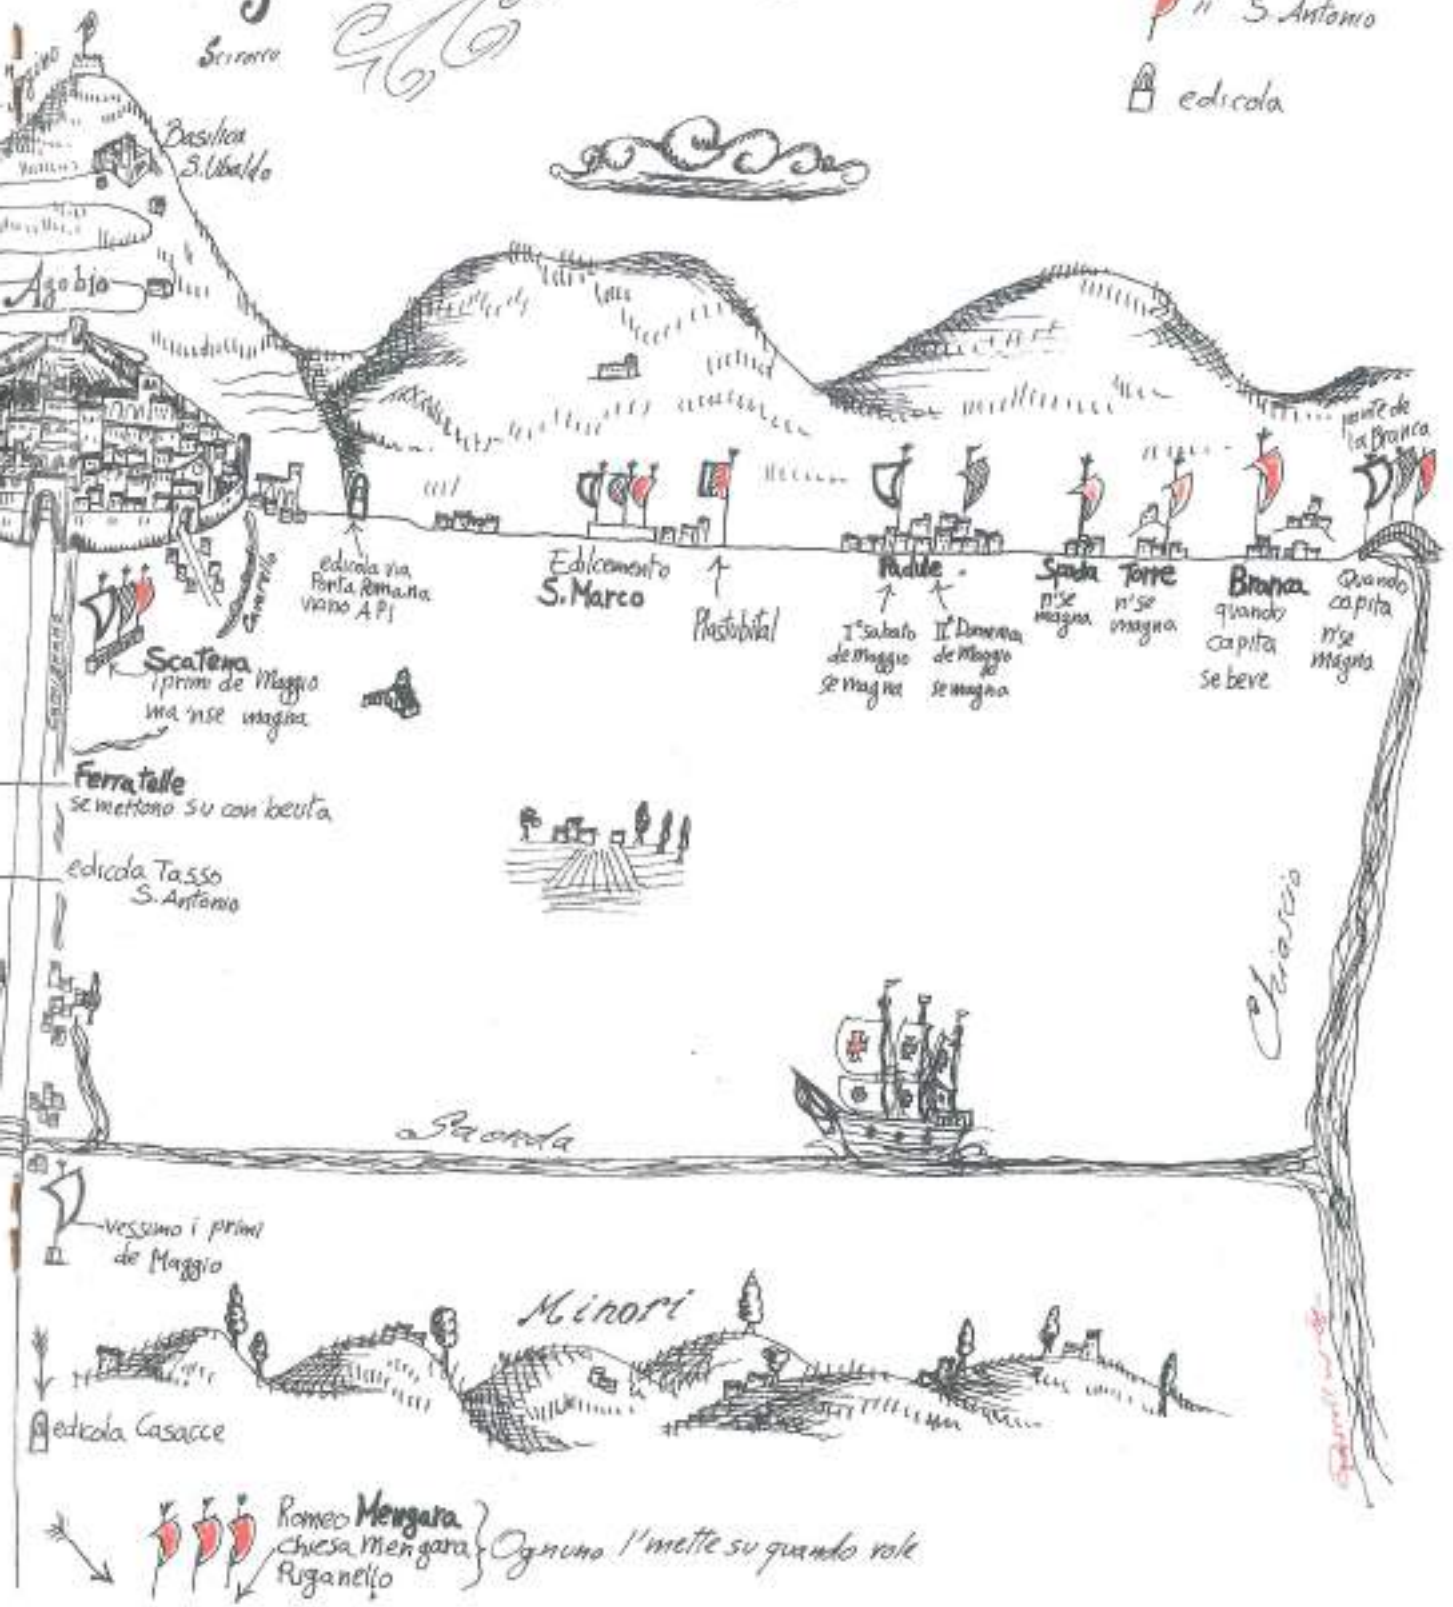 Scirocco
" S. Antonio
edicola
Basilica
S. Ubaldo
Agobio
ponte de
la Branca
edicola via
Porta Romana
vano API
Cavarello
Edilcemento
S. Marco
Plastubital
Padule
1° sabato
de maggio
se magna
II° Domenica
de Maggio
se magna
Spada
n'se
magna
Torre
n'se
magna
Branca
quando
capita
se beve
Quando
capita
n'se
magna
Scatena
i primi de Maggio
ma 'nse magna
Ferratelle
se mettono su con beuta
edicola Tasso
S. Antonio
Chiascio
Saonda
vessimo i primi
de Maggio
Minori
edicola Casacce
Romeo Mengara
chiesa Mengara
Ruganello
Ognuno l'mette su quando vole